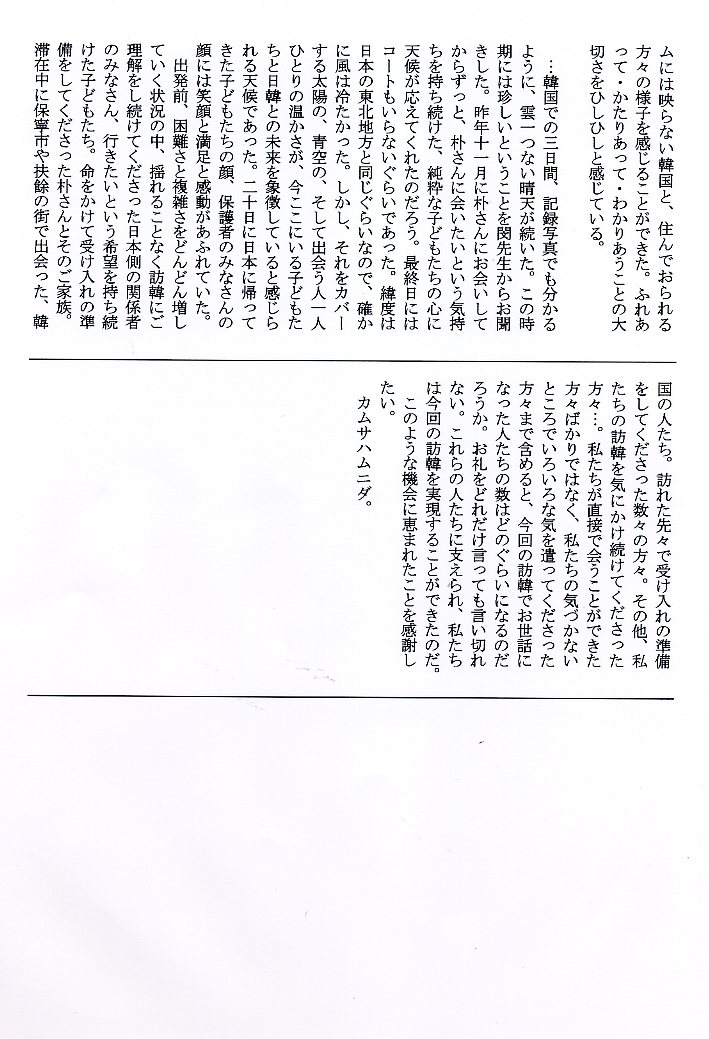 ムには映らない韓国と、住んでおられる
方々の様子を感じることができた。ふれあ
って・かたりあって・わかりあうことの大
切さをひしひしと感じている。
…韓国での三日間、記録写真でも分かる
ように、雲一つない晴天が続いた。この時
期には珍しいということを閔先生からお聞
きした。昨年十一月に朴さんにお会いして
からずっと、朴さんに会いたいという気持
ちを持ち続けた、純粋な子どもたちの心に
天候が応えてくれたのだろう。最終日には
コートもいらないぐらいであった。緯度は
日本の東北地方と同じぐらいなので、確か
に風は冷たかった。しかし、それをカバー
する太陽の、青空の、そして出会う人一人
ひとりの温かさが、今ここにいる子どもた
ちと日韓との未来を象徴していると感じら
れる天候であった。二十日に日本に帰って
きた子どもたちの顔、保護者のみなさんの
顔には笑顔と満足と感動があふれていた。
出発前、困難さと複雑さをどんどん増し
ていく状況の中、揺れることなく訪韓にご
理解をし続けてくださった日本側の関係者
のみなさん、行きたいという希望を持ち続
けた子どもたち。命をかけて受け入れの準
備をしてくださった朴さんとそのご家族。
滞在中に保寧市や扶餘の街で出会った、韓
国の人たち。訪れた先々で受け入れの準備
をしてくださった数々の方々。その他、私
たちの訪韓を気にかけ続けてくださった
方々…。私たちが直接で会うことができた
方々ばかりではなく、私たちの気づかない
ところでいろいろな気を遣ってくださった
方々まで含めると、今回の訪韓でお世話に
なった人たちの数はどのぐらいになるのだ
ろうか。お礼をどれだけ言っても言い切れ
ない。これらの人たちに支えられ、私たち
は今回の訪韓を実現することができたのだ。
このような機会に恵まれたことを感謝し
たい。
カムサハムニダ。